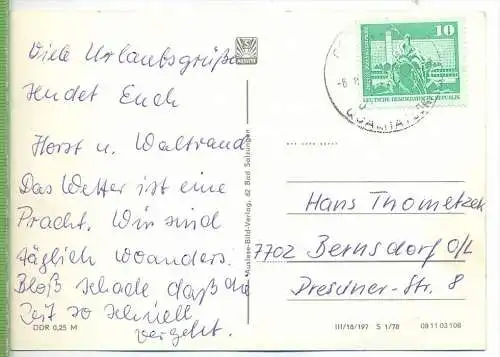 Viele Urlaubsgrüße
sendet Euch
Horst u. Waltraud
Das Wetter ist eine
Pracht. Wir sind
täglich woanders.
Bloß schade daß die
Zeit so schnell
vergeht.
DDR 0,25 M
Auslese-Bild-Verlag, 62 Bad Salzungen
10
DEUTSCHE DEMOKRATISCHE REPUBLIK
Hans Thometzek
7702 Bernsdorf O/L
Dresdner-Str. 8
III/18/197 S 1/78 09 11 03 106